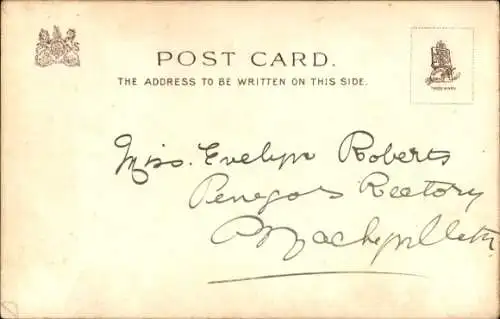 POST CARD.
THE ADDRESS TO BE WRITTEN ON THIS SIDE.
TRADE MARK
Miss. Evelyn Roberts
Penegoes Rectory
Machynlleth